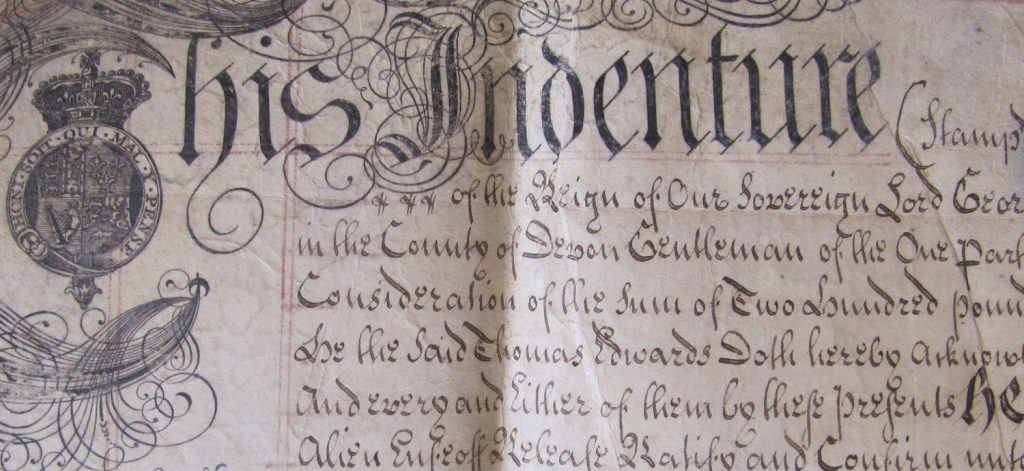 his Indenture (Stamp'd
HONI·SOIT·QUI·MAL·Y·PENSE
of the Reign of Our Sovereign Lord Geor
in the County of Devon Gentleman of the One Part
Consideration of the Sum of Two Hundred poun
He the Said Thomas Edwards Doth hereby Acknow
And every and Either of them by these presents
Alien Enfeoff Release Ratify and Confirm unto